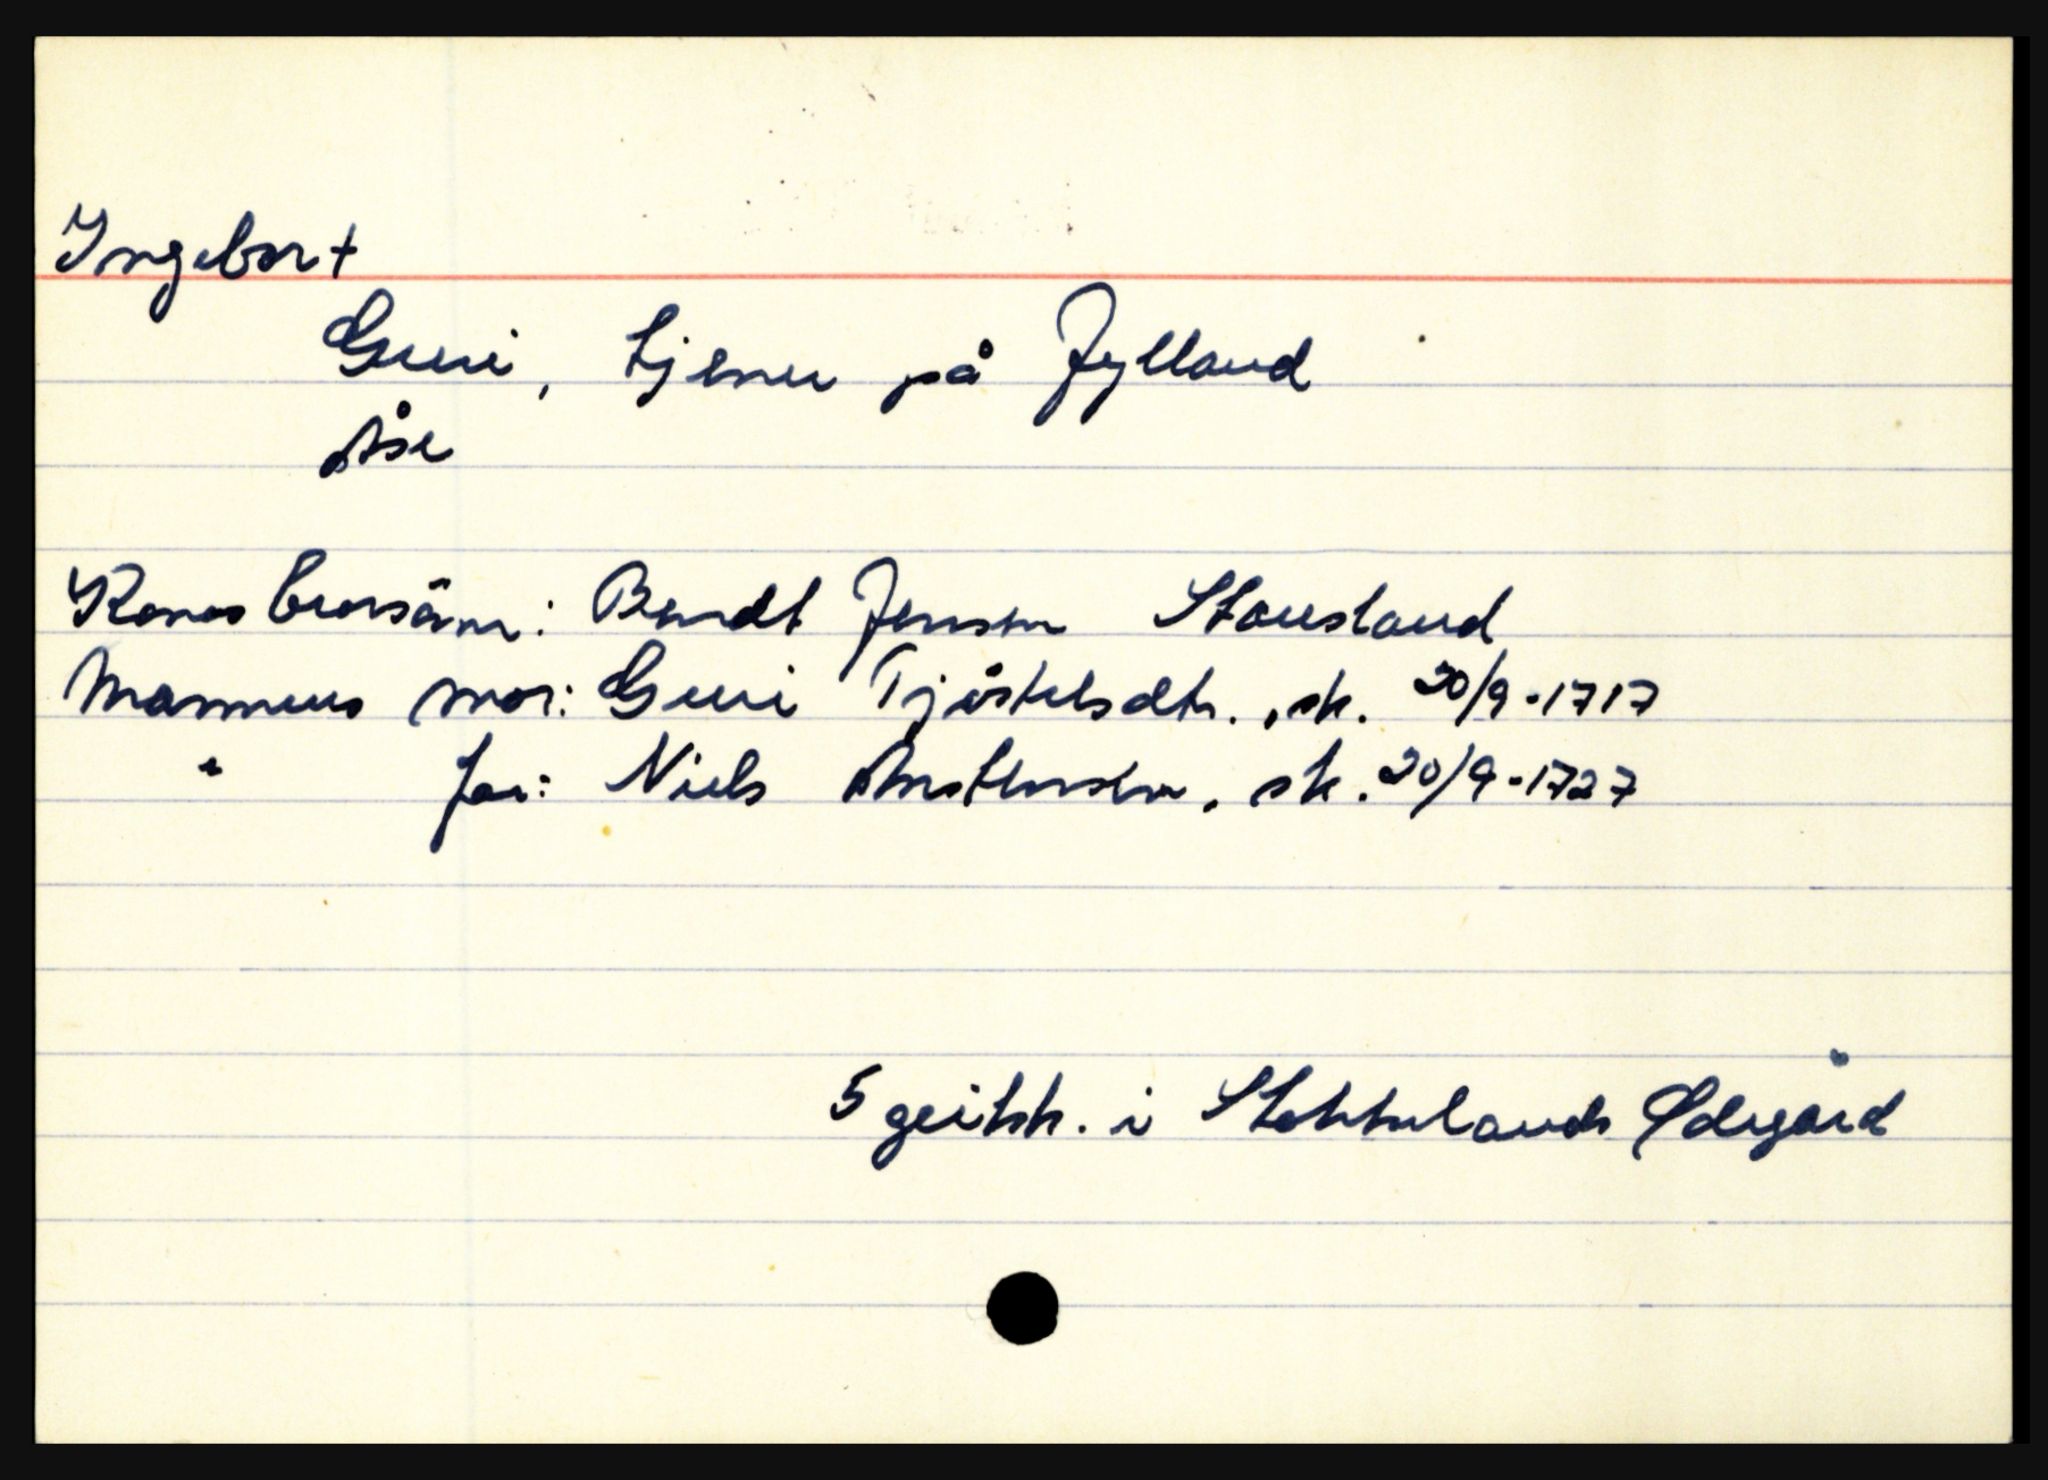 Ingebor +
Guri, tjener på Jylland
Åse
Konas brorsønn: Berndt Jensen Stausland
Mannens mor: Guri Tjöstelsdtr., sk. 20/9-1717
" far: Niels Anstensen, sk. 20/9-1727
5 geitsk. i Stokkelands Ødegård